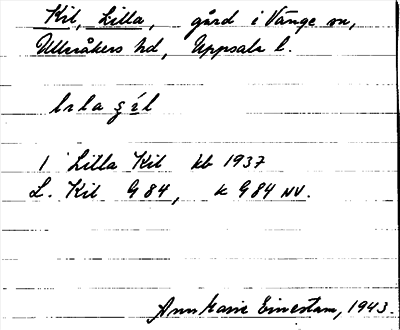 Kil, Lilla, gård i Vänge sn,
Ulleråkers hd, Uppsala l.
1 Lilla Kil kb 1937
L. Kil G 84, k G 84 NV.
Ann Marie Einestam, 1943.